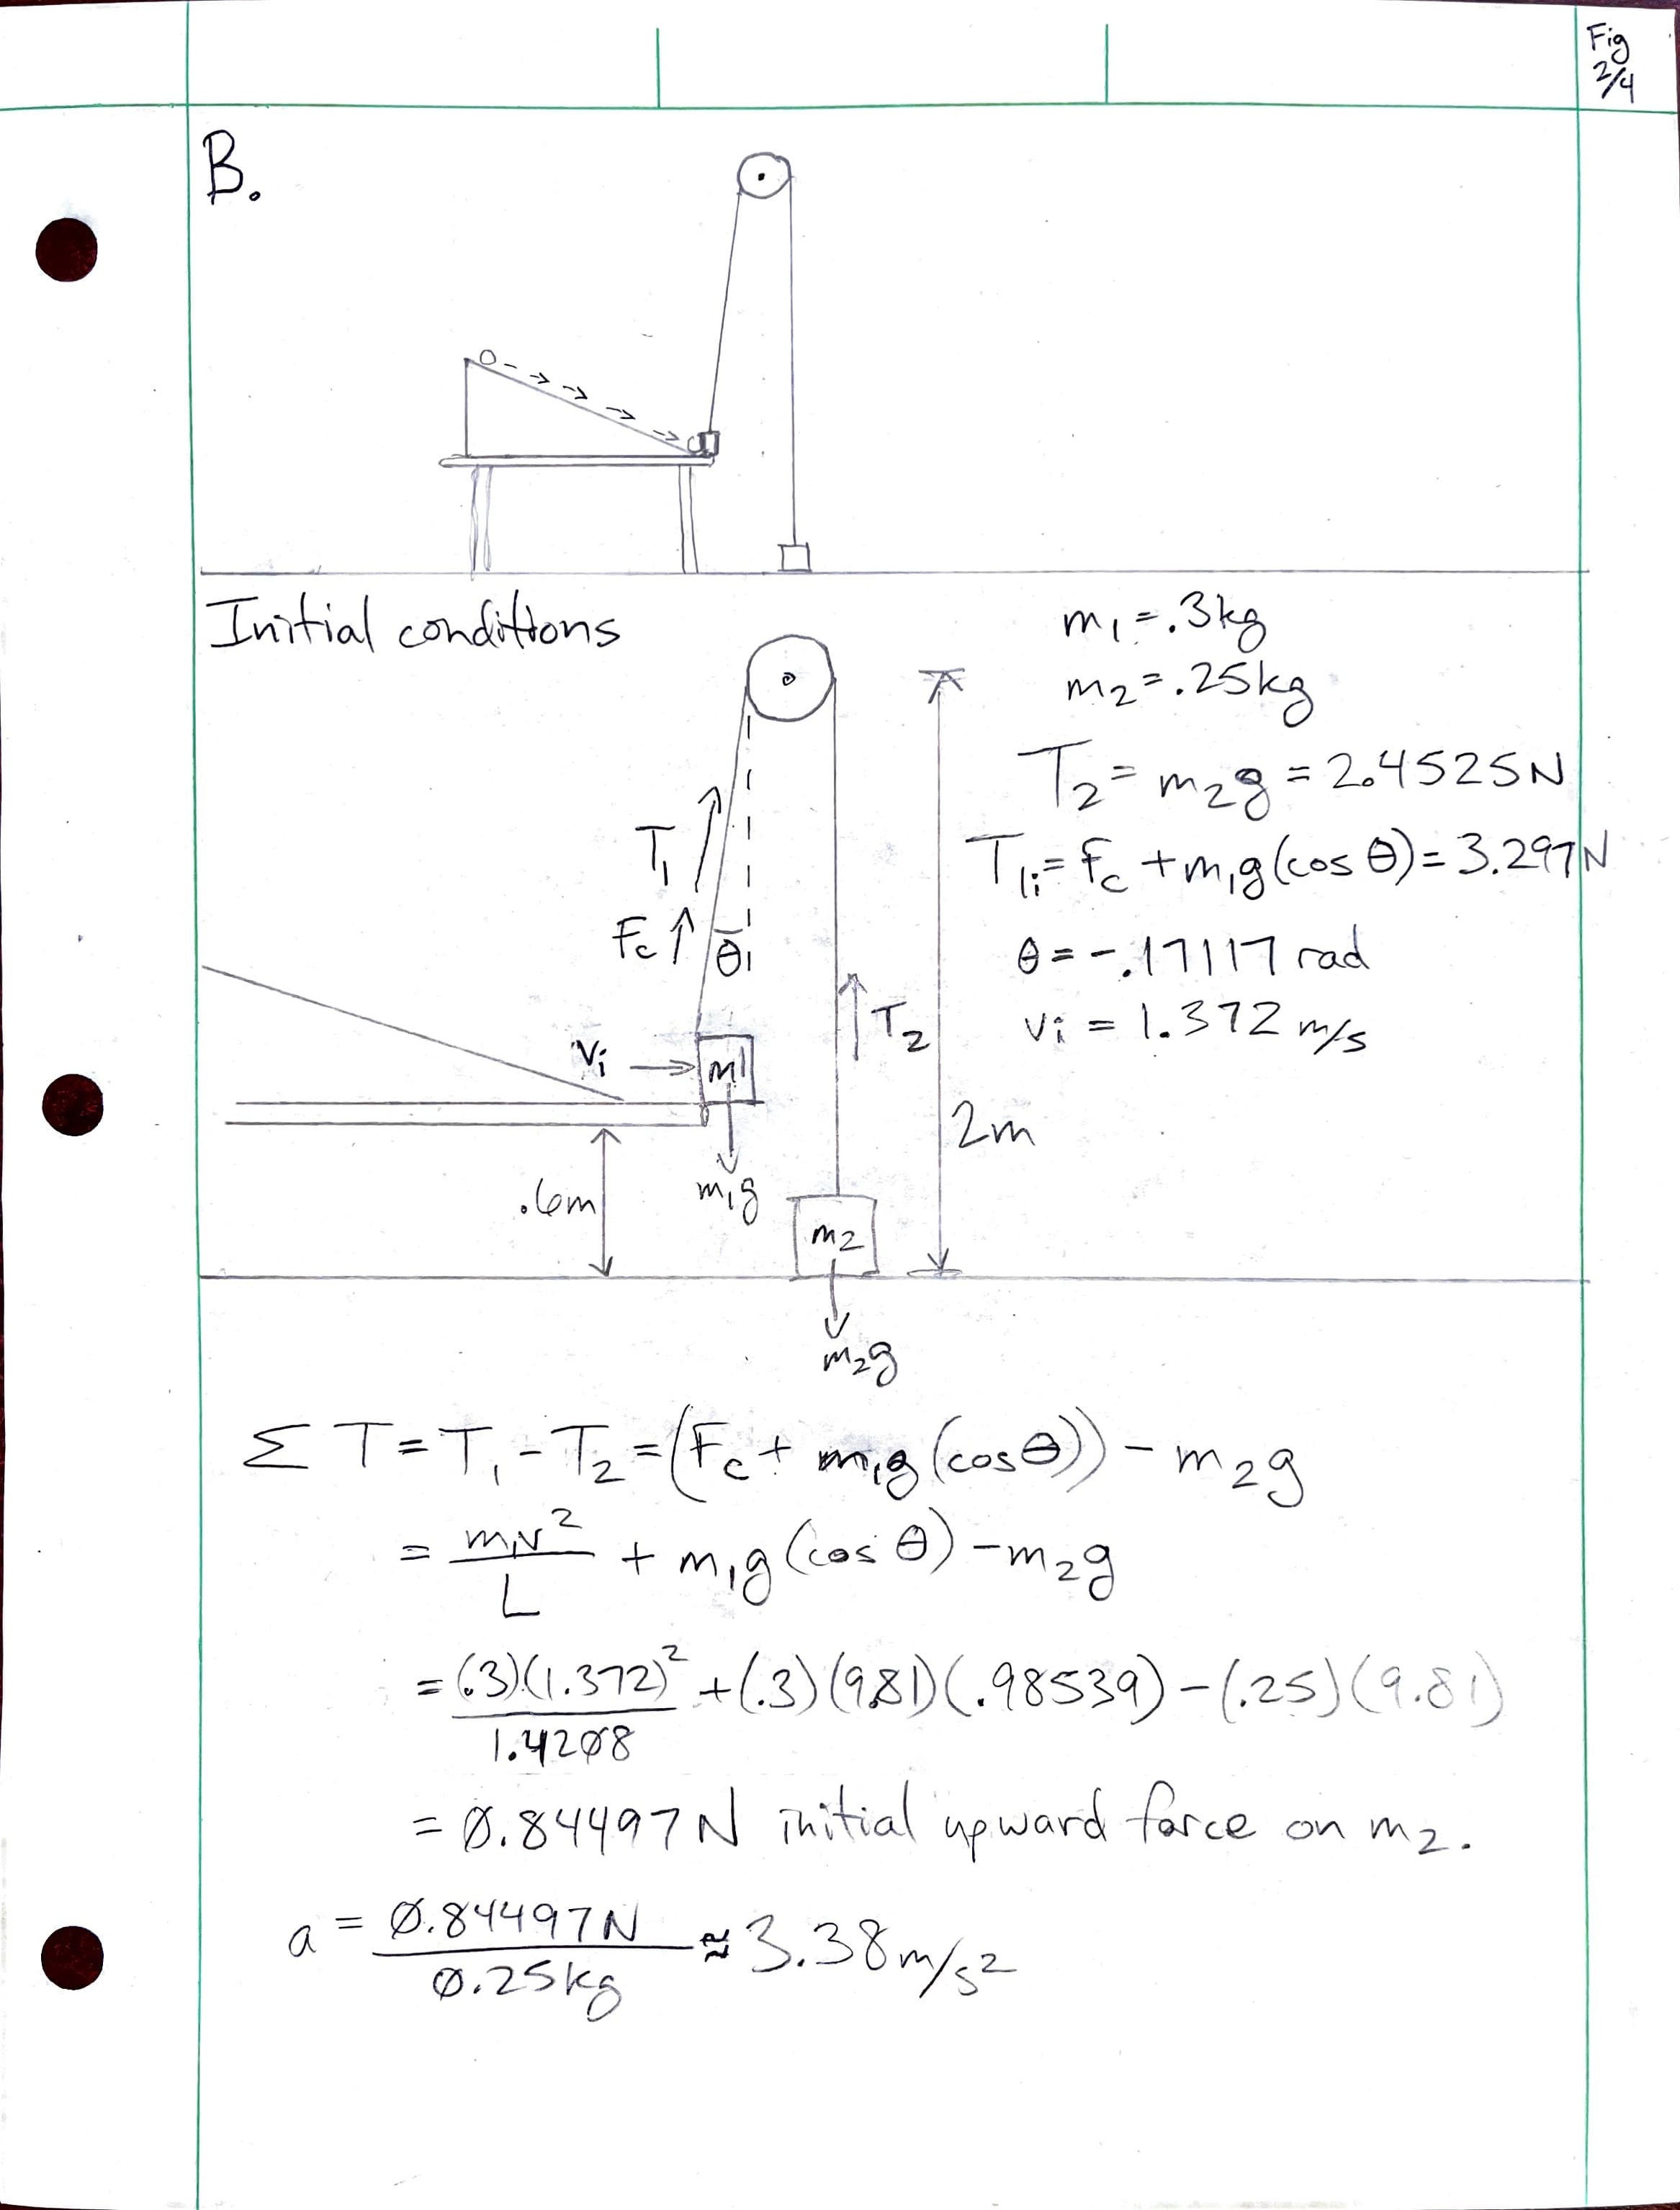 Fig
2/4
B.
Initial conditions
m₁ = .3kg
m₂ = .25kg
T₂ = m₂g = 2.4525N
T₁ᵢ = Fc + m₁g(cos θ) = 3.297N
θ = -.17117 rad
vᵢ = 1.372 m/s
T₁
Fc
θ
Vᵢ
m1
T₂
2m
.6m
m₁g
m₂
m₂g
Σ T = T₁ - T₂ = (Fc + m₁g (cosθ)) - m₂g
= m₁v² / L + m₁g (cos θ) - m₂g
= (.3)(1.372)² / 1.4208 + (.3)(9.81)(.98539) - (.25)(9.81)
= 0.84497N initial upward force on m₂.
a = 0.84497N / 0.25kg ≈ 3.38 m/s²